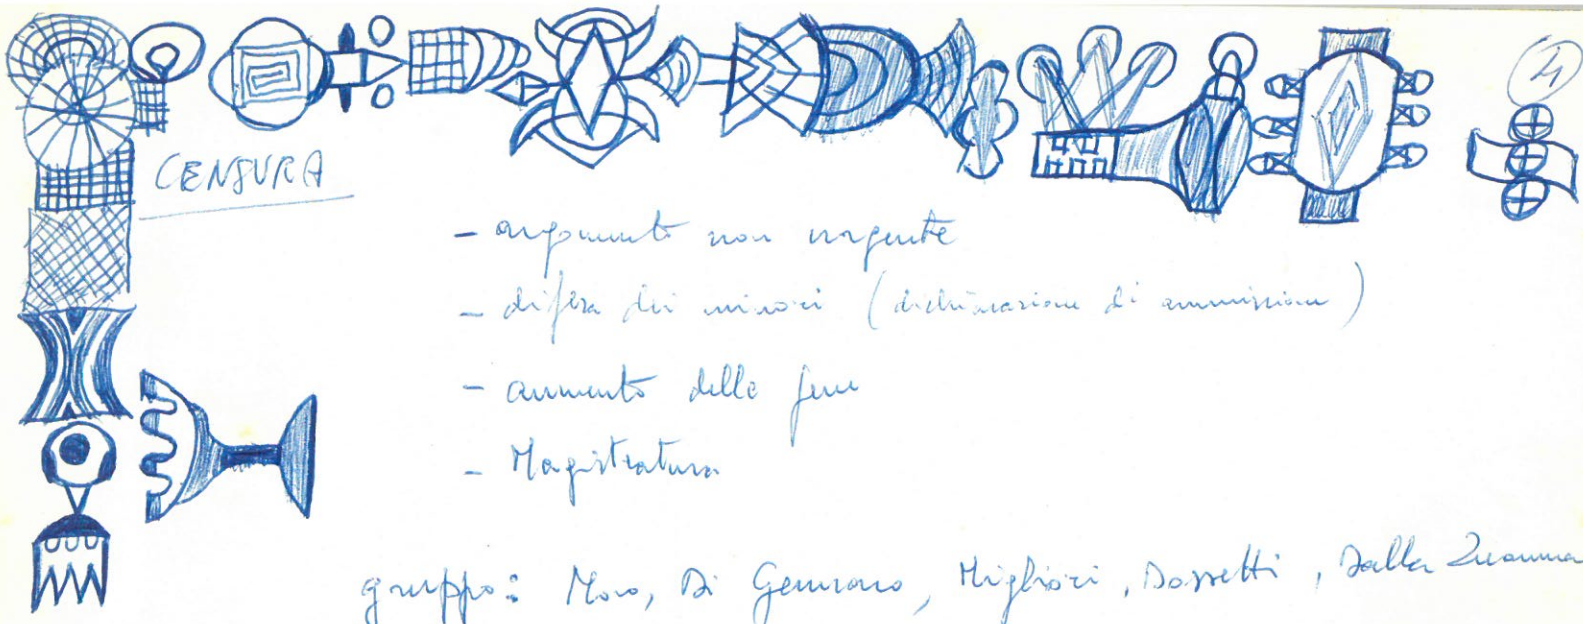 21
CENSURA
- argomento non urgente
- difesa dei minori (dichiarazione di ammissione)
- aumento delle pene
- Magistratura
gruppo: Moro, Di Gennaro, Migliori, Dossetti, Dalla Zuanna